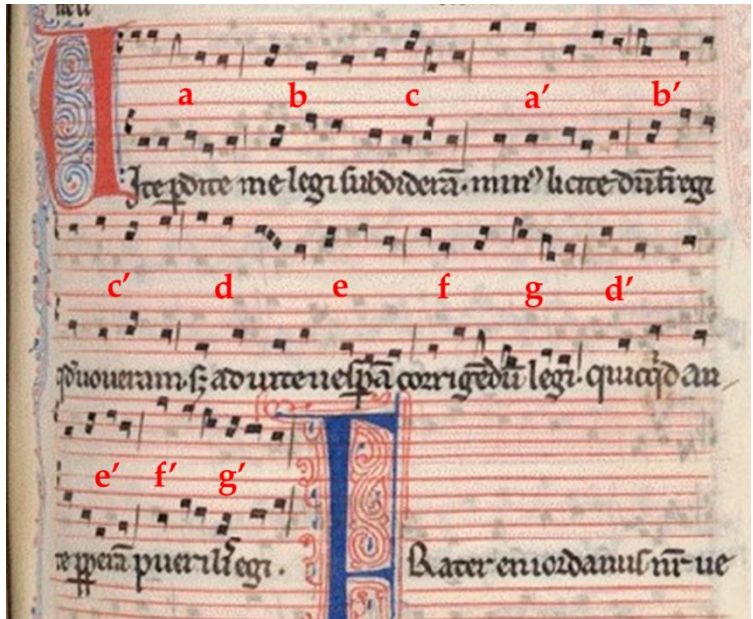 a b c a′ b′
VIte pdite me legi subdiderā. min⁹ licite dū fregi
c′ d e f g d′
qd uoueram. sz ad uite uespā corrigēdū legi. quicqd an
e′ f′ g′
te pperā puerilr egi.
FRater en iordanus nr ue